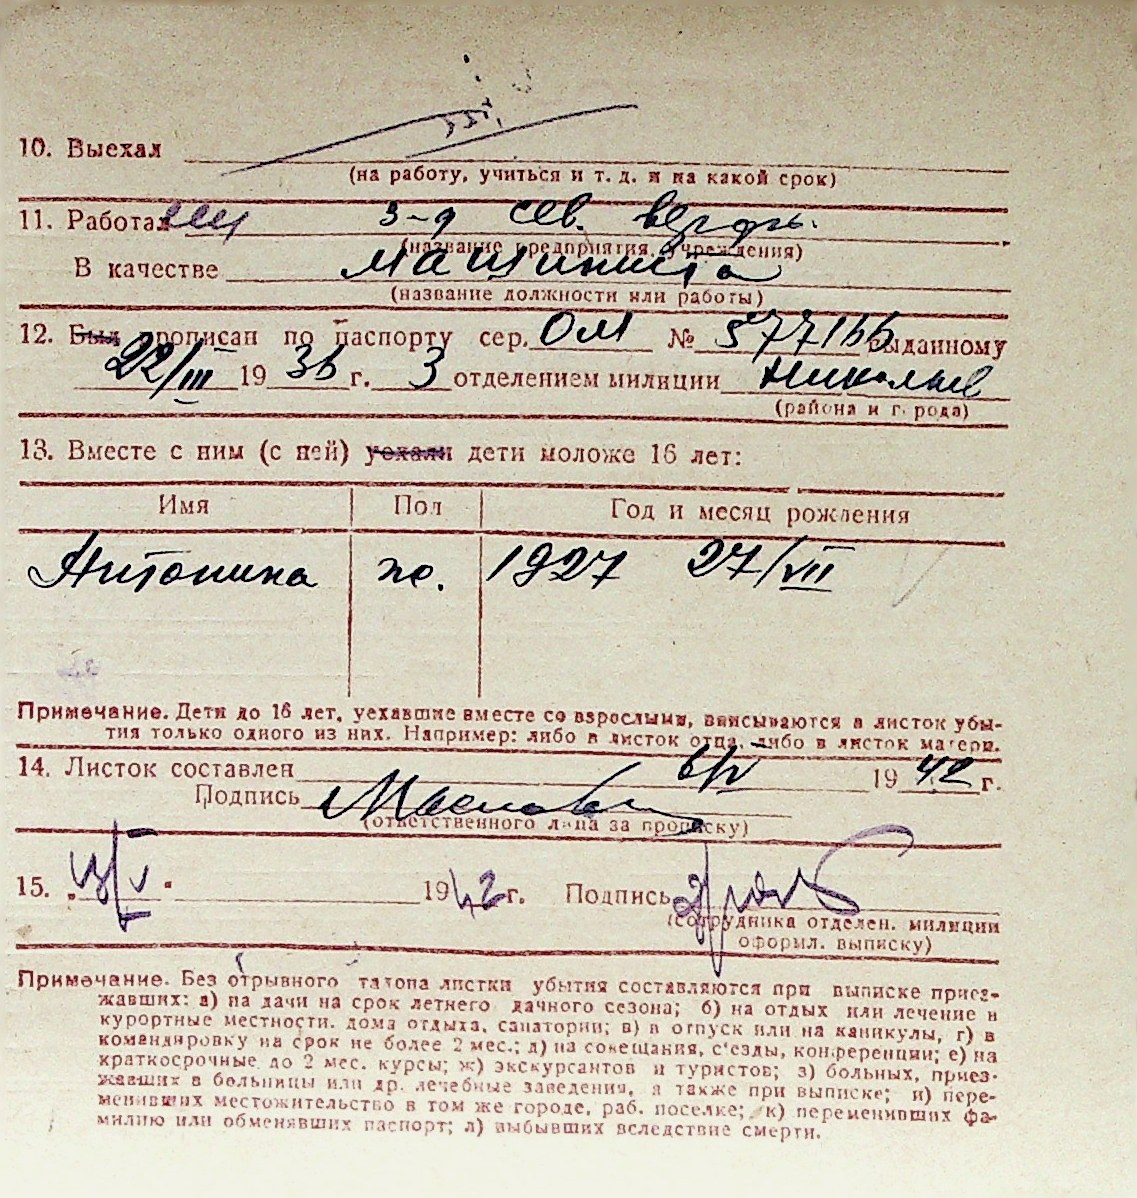 10. Выехал
(на работу, учиться и т. д. и на какой срок)
11. Работал з-д Сев. верфь.
(название предприятия, учреждения)
В качестве машиниста
(название должности или работы)
12. Был прописан по паспорту сер. ОМ № 577166 выданному
22/III 1936 г. 3 отделением милиции Николаев
(района и города)
13. Вместе с ним (с ней) уехали дети моложе 16 лет:
Имя Пол Год и месяц рождения
Антонина ж. 1927 27/VII
Примечание. Дети до 16 лет, уехавшие вместе со взрослыми, вписываются в листок убы-
тия только одного из них. Например: либо в листок отца, либо в листок матери.
14. Листок составлен 6/V 1942 г.
Подпись
(ответственного лица за прописку)
15. „13/V" 1942 г. Подпись
(сотрудника отделен. милиции
оформл. выписку)
Примечание. Без отрывного талона листки убытия составляются при выписке приез-
жавших: а) на дачи на срок летнего дачного сезона; б) на отдых или лечение в
курортные местности, дома отдыха, санатории; в) в отпуск или на каникулы, г) в
командировку на срок не более 2 мес.; д) на совещания, с'езды, конференции; е) на
краткосрочные до 2 мес. курсы; ж) экскурсантов и туристов; з) больных, приез-
жавших в больницы или др. лечебные заведения, а также при выписке; и) пере-
менивших местожительство в том же городе, раб. поселке; к) переменивших фа-
милию или обменявших паспорт; л) выбывших вследствие смерти.